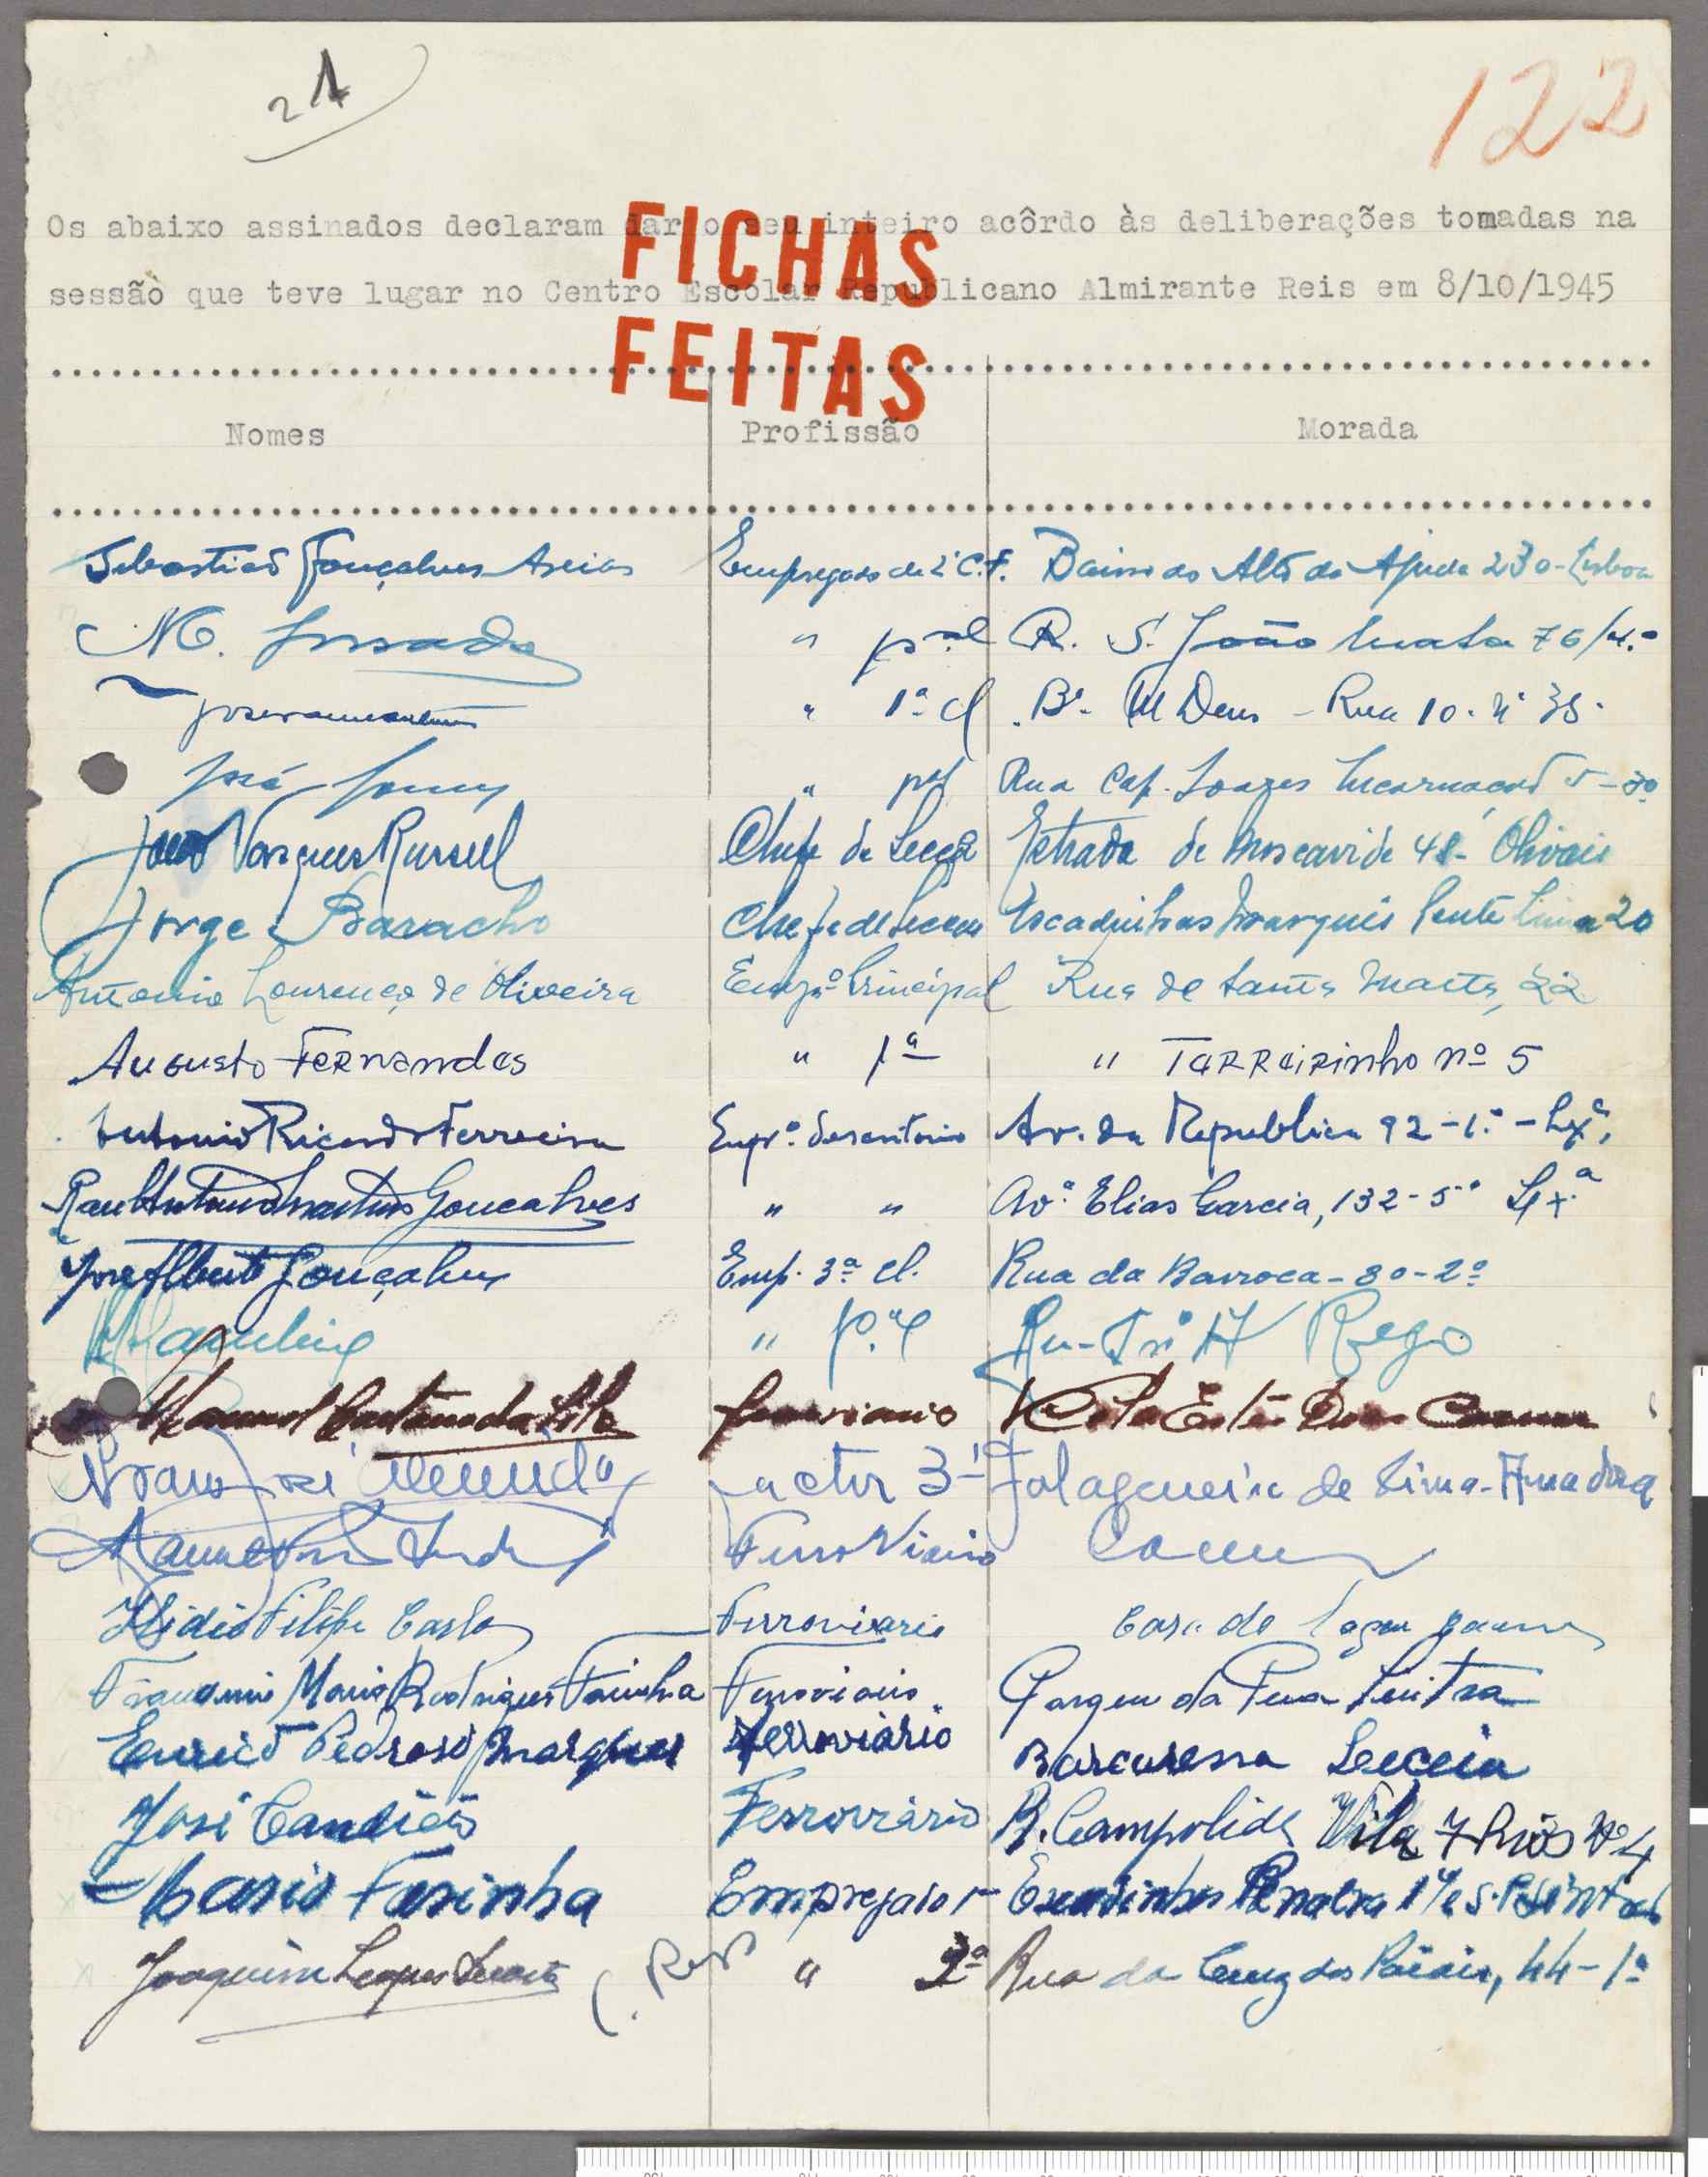 21
122
Os abaixo assinados declaram dar o seu inteiro acôrdo às deliberações tomadas na
sessão que teve lugar no Centro Escolar Republicano Almirante Reis em 8/10/1945
FICHAS
FEITAS
Nomes Profissão Morada
Sebastião Gonçalves Areias Empregado de 2ª C.F. Bairro do Alto da Ajuda 230-Lisboa
M. " p.al R. S. João Mata 76/4.º
" 1ª cl. Bº. M Deus - Rua 10. nº 35.
José Gomes " pal Rua Cap. Encarnação 5-3º
João Vasques Russell Chefe de Secçã Estrada de Moscavide 48- Olivais
Jorge Baracho Chefe de Secção Escadinhas Marquês Ponte Lima 20
Antonio Lourenço de Oliveira Empº Principal Rua de Santa Marta, 22
Augusto Fernandes " 1ª " Terreirinho nº 5
Antonio Ricardo Ferreira Empº. Descritorio Av. da Republica 92-1.º - Lxª.
Raul Antonio Martins Gonçalves " " Avª. Elias Garcia, 132-5º Lxª
José Alberto Gonçalves Emp. 3ª cl. Rua da Barroca-80-2º
" p.al Rego
Manuel Caetano da Silva ferroviario
João José factor 3ª Falagueira de Cima-Amadora
Manuel Ferroviario Cacem
Ilidio Filipe Carlos Ferroviario
Mario Rodrigues Farinha Ferroviario Sintra
Eurico Pedroso Marques Ferroviário Barcarena Leceia
José Candido Ferroviário R. Campolide Vila 7 Rios Nº 4
Mario Farinha Empregado 1ª Escadinhas
Joaquim Lopes " 2ª Rua da Cruz dos Poiais, 44-1º